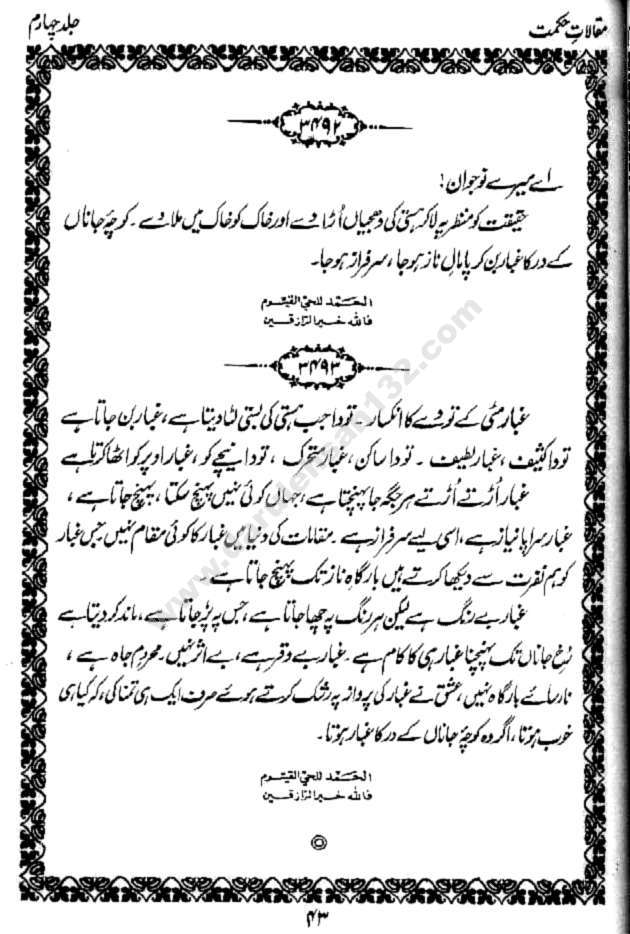 مقالاتِ حکمت
جلد چہارم
۳۴۹۲
اے میرے نوجوان!
حقیقت کو منظر پہ لا کر ہستی کی دھجیاں اُڑا دے اور خاک کو خاک میں ملا دے ۔ کوچۂ جاناں
کے در کا غبار بن کر پامالِ ناز ہو جا ، سرفراز ہو جا۔
الحمد للحی القیوم
فاللہ خیر الرازقین
۳۴۹۳
غبار مٹی کے تودے کا انکسار ۔ تودا جب ہستی کی بستی لٹا دیتا ہے ، غبار بن جاتا ہے
تودا کثیف ، غبار لطیف ۔ تودا ساکن ، غبار متحرک ، تودا نیچے کو ، غبار اوپر کو اٹھا کرتا ہے
غبار اُڑتے اُڑتے ہر جگہ جا پہنچتا ہے ، جہاں کوئی نہیں پہنچ سکتا ، پہنچ جاتا ہے ،
غبار سراپا نیاز ہے ، اسی لیے سرفراز ہے ۔ مقامات کی دنیا میں غبار کا کوئی مقام نہیں جس غبار
کو ہم نفرت سے دیکھا کرتے ہیں بارگاہِ ناز تک پہنچ جاتا ہے ۔
غبار بے رنگ ہے لیکن ہر رنگ پہ چھا جاتا ہے ، جس پہ پڑ جاتا ہے ، ماند کر دیتا ہے
رُخِ جاناں تک پہنچنا غبار ہی کا کام ہے ۔ غبار بے وقر ہے ، بے اثر نہیں ۔ محروم جاہ ہے ،
نارسائے بارگاہ نہیں ، عشق نے غبار کی پرواز پہ رشک کرتے ہوئے صرف ایک ہی تمنا کی ، کہ کیا ہی
خوب ہوتا ، اگر وہ کوچۂ جاناں کے در کا غبار ہوتا ۔
الحمد للحی القیوم
فاللہ خیر الرازقین
۴۳